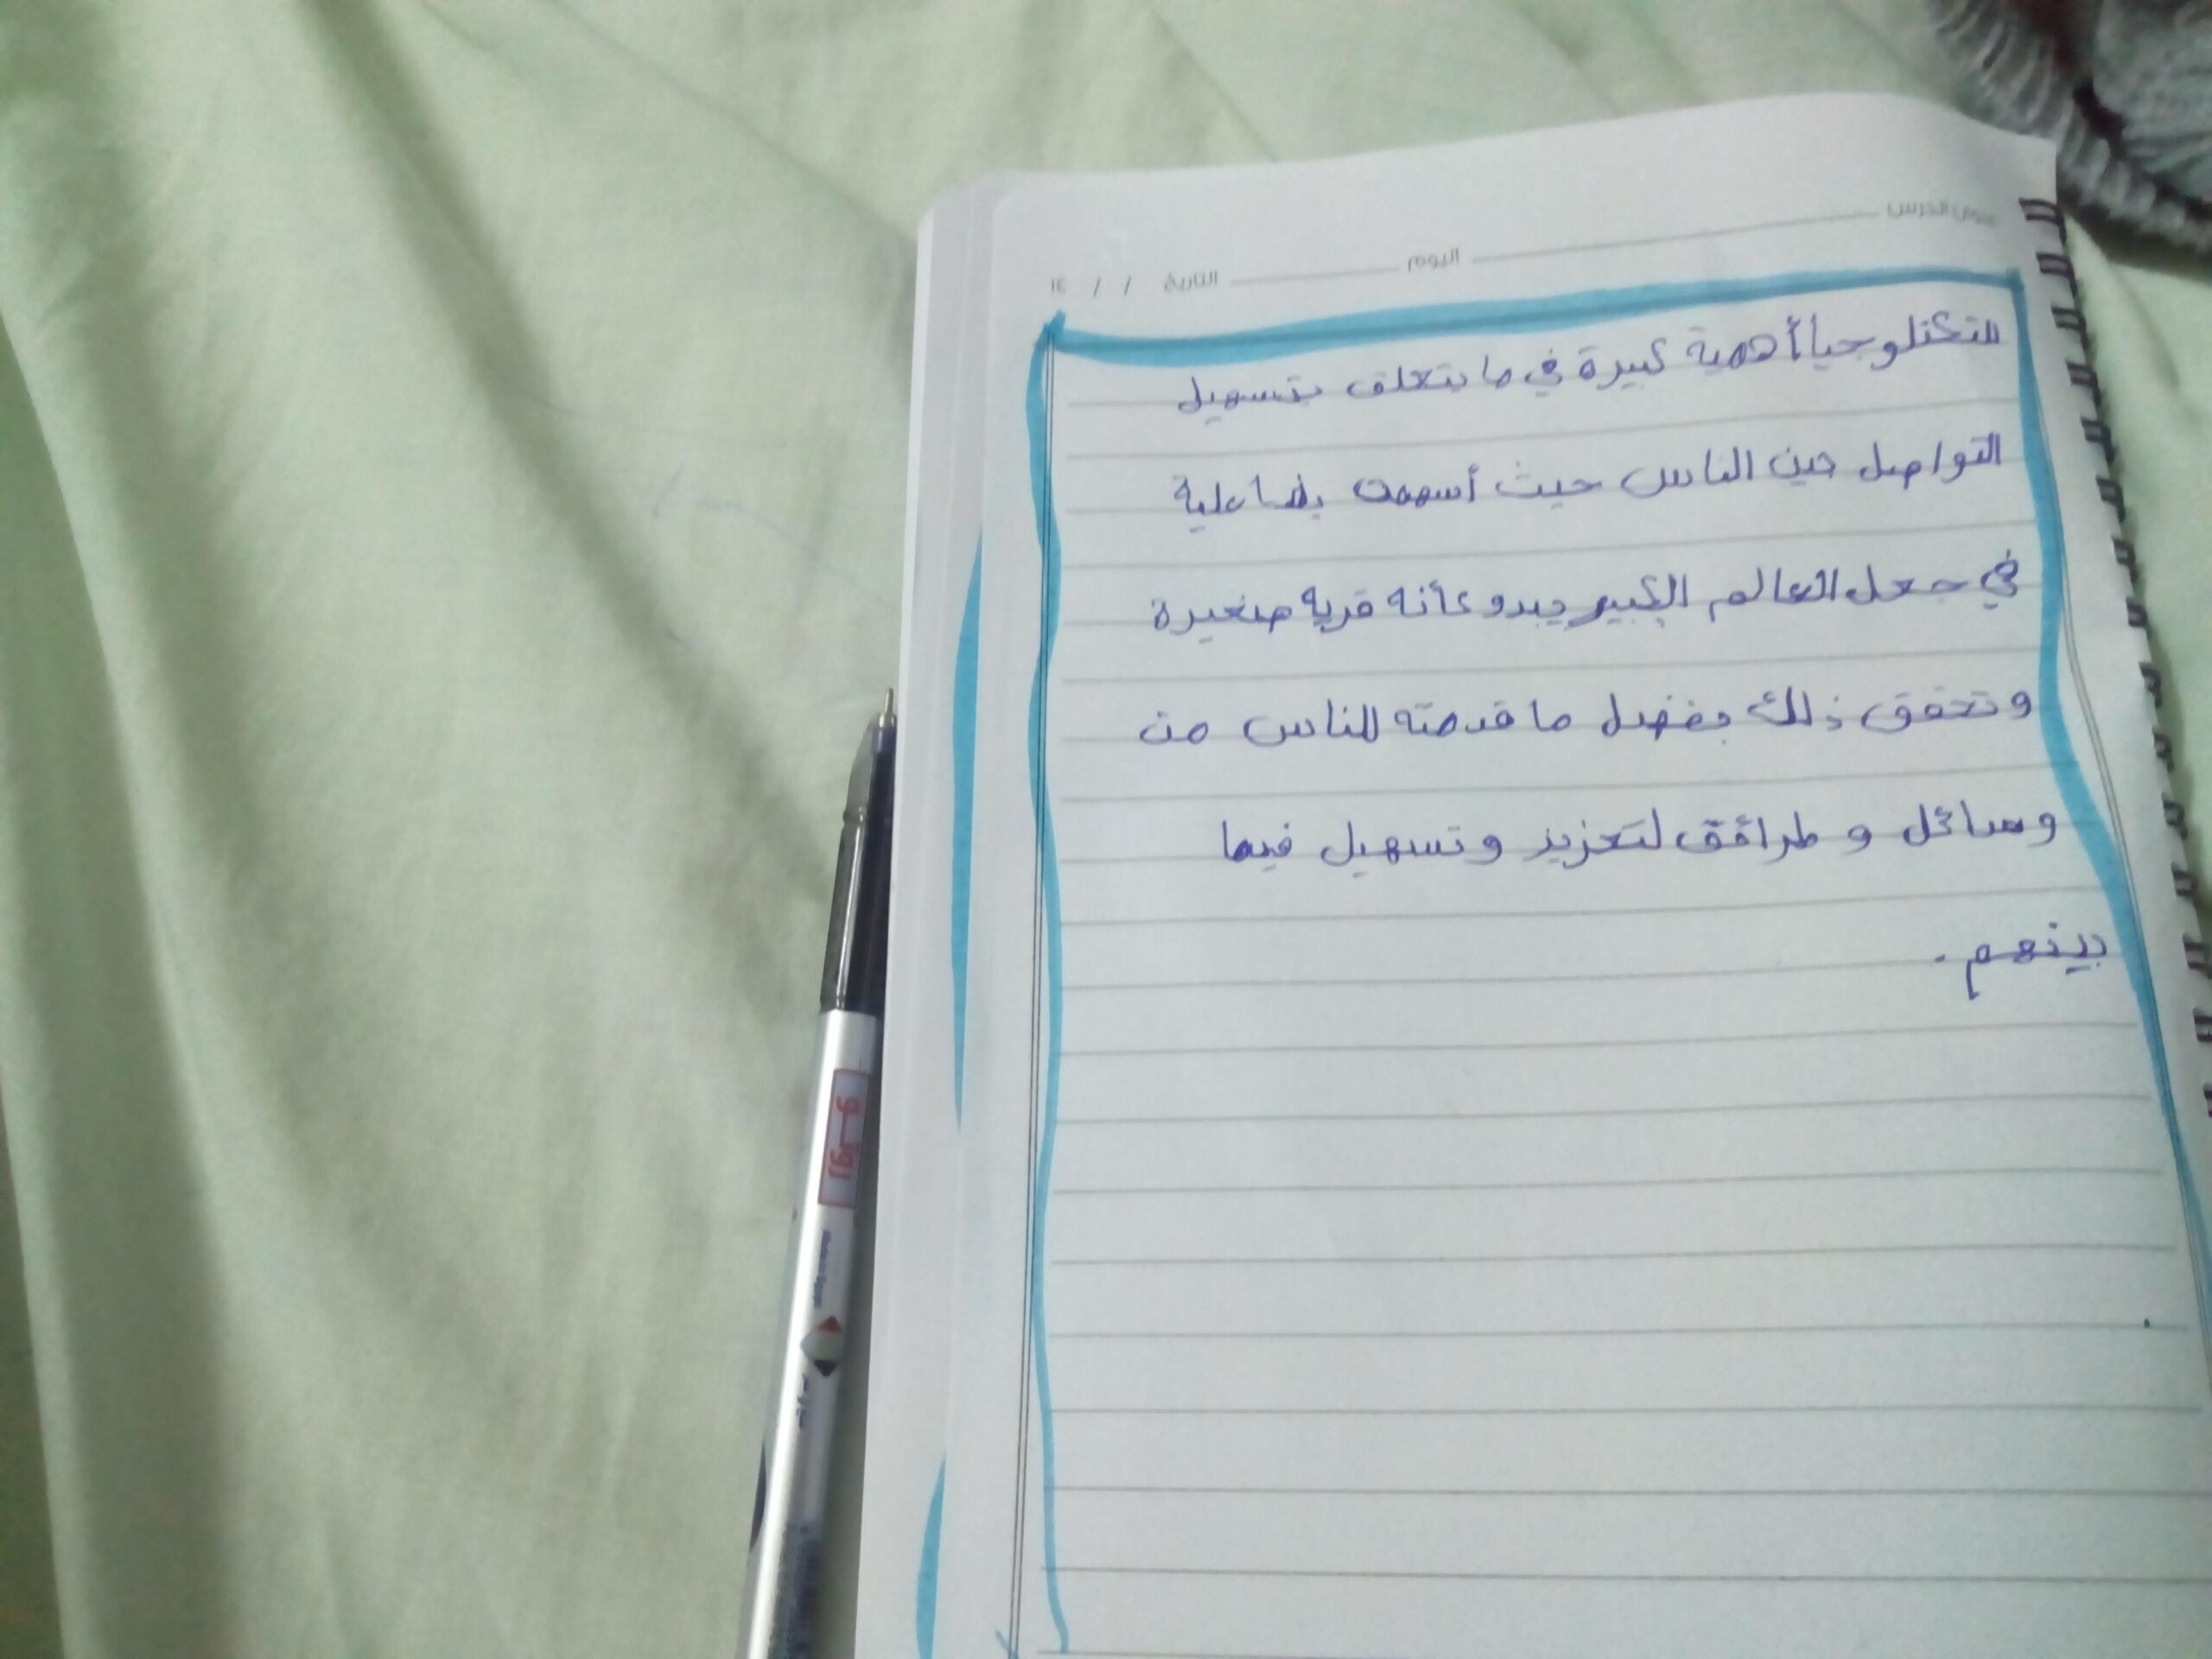 عنوان الدرس
اليوم
التاريخ / / ١٤
للتكنلوجيا أهمية كبيرة في ما يتعلق بتسهيل
التواصل بين الناس حيث أسهمت بفاعلية
في جعل العالم الكبير يبدو كأنه قريه صغيرة
وتحقق ذلك بفضل ما قدمته للناس من
وسائل و طرائق لتعزيز وتسهيل فيما
بينهم .
روتـو